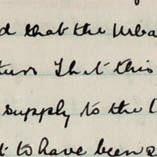 d that the Urba
turn that this
supply to the l
t to have been a